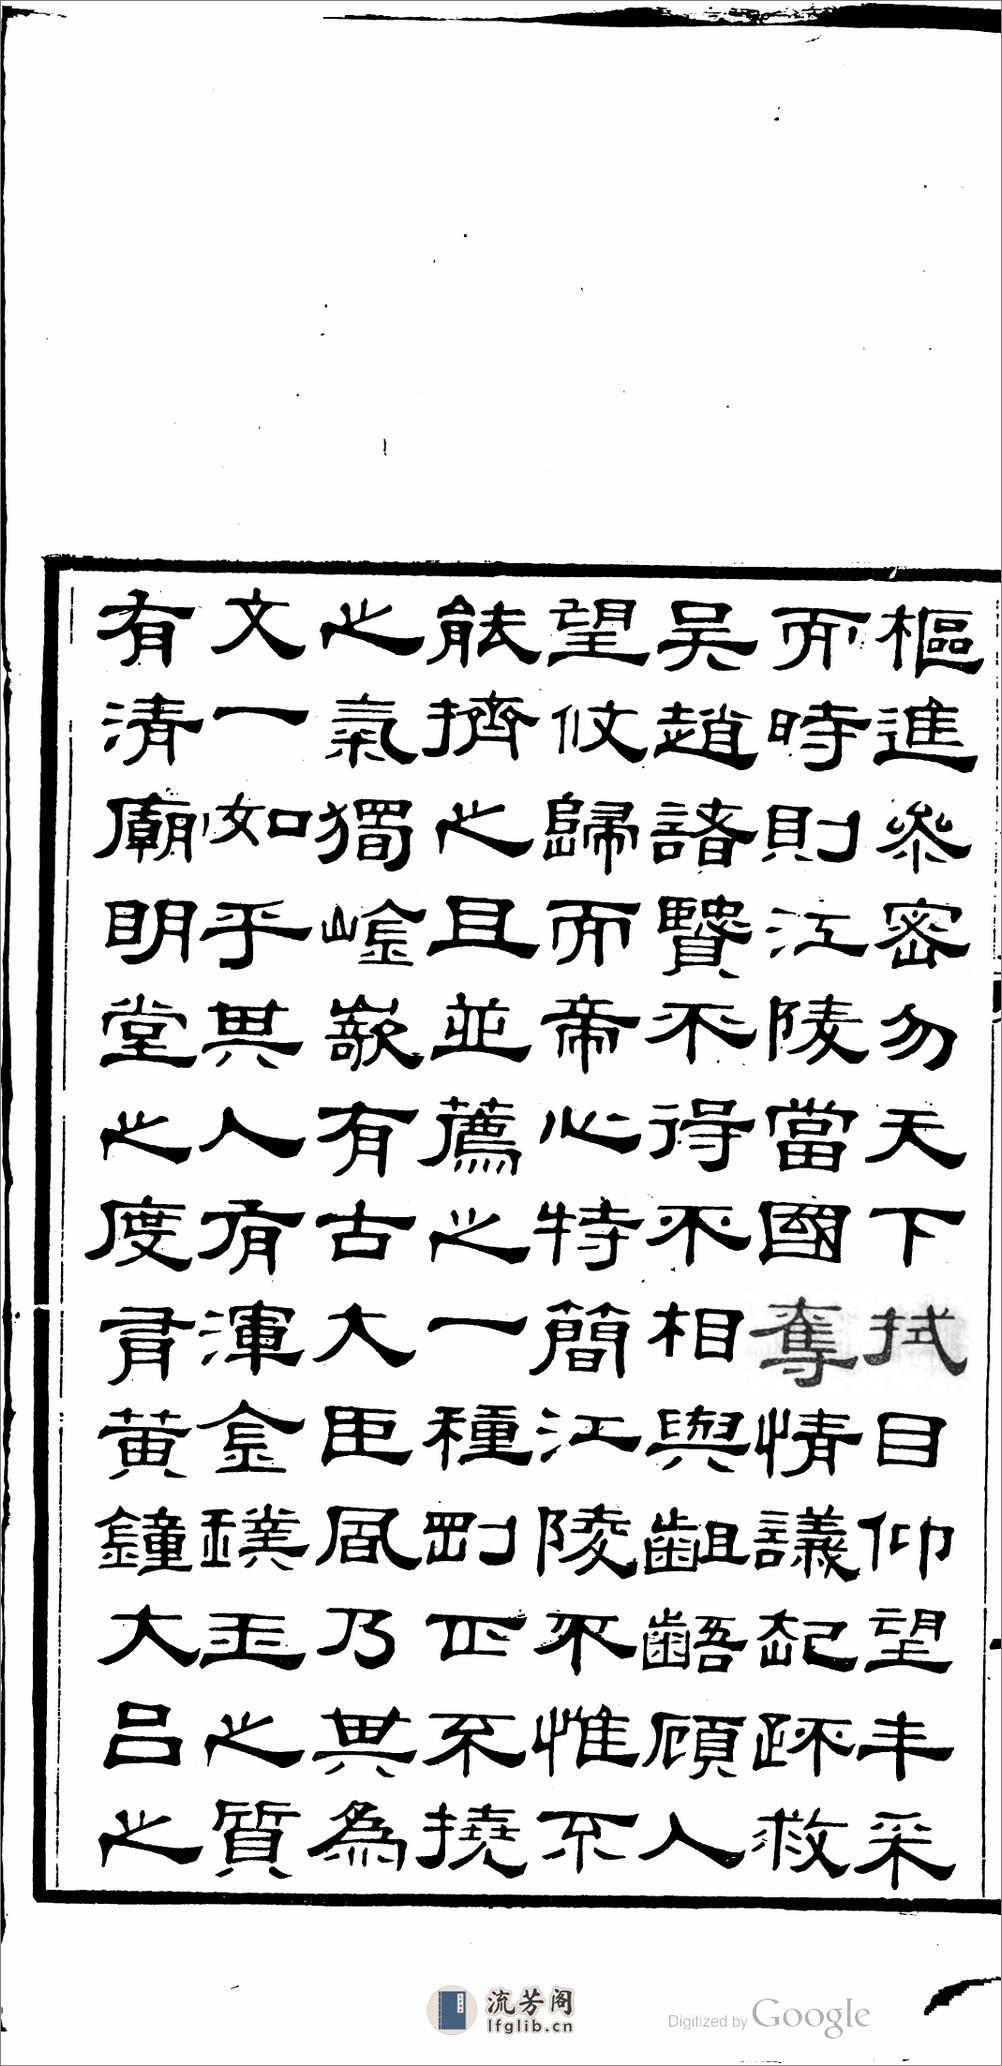 樞進參密勿天下拭目仰望丰采
而時則江陵當國奪情議起疏救
吳趙諸賢不得不相與齟齬顧人
望攸歸而帝心特簡江陵不惟不
能擠之且並薦之一種剛正不撓
之氣獨崯嶔有古大臣風乃其為
文一如乎其人有渾金璞玉之質
有清廟明堂之度有黃鐘大呂之
流芳阁
lfglib.cn
Digitized by Google